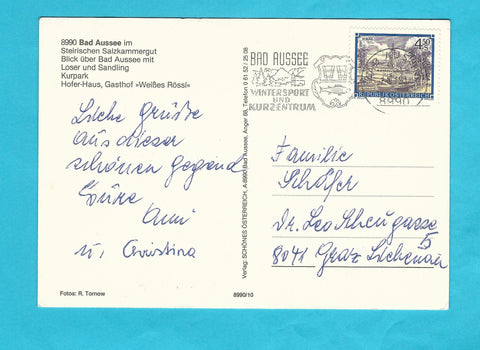 8990 Bad Aussee im
Steirischen Salzkammergut
Blick über Bad Aussee mit
Loser und Sandling
Kurpark
Hofer-Haus, Gasthof »Weißes Rössl«
Liebe Grüße
aus dieser
schönen Gegend
Eure
Anni
u. Christina
Fotos: R. Tornow
8990/10
Verlag: SCHÖNES ÖSTERREICH, A-8990 Bad Aussee, Anger 68, Telefon 0 61 52 / 25 08
BAD AUSSEE
WINTERSPORT
UND
KURZENTRUM
4.50
REPUBLIK ÖSTERREICH
8990
Familie
Schäfer
Dr. Leo Scheugasse
5
8041 Graz Liebenau